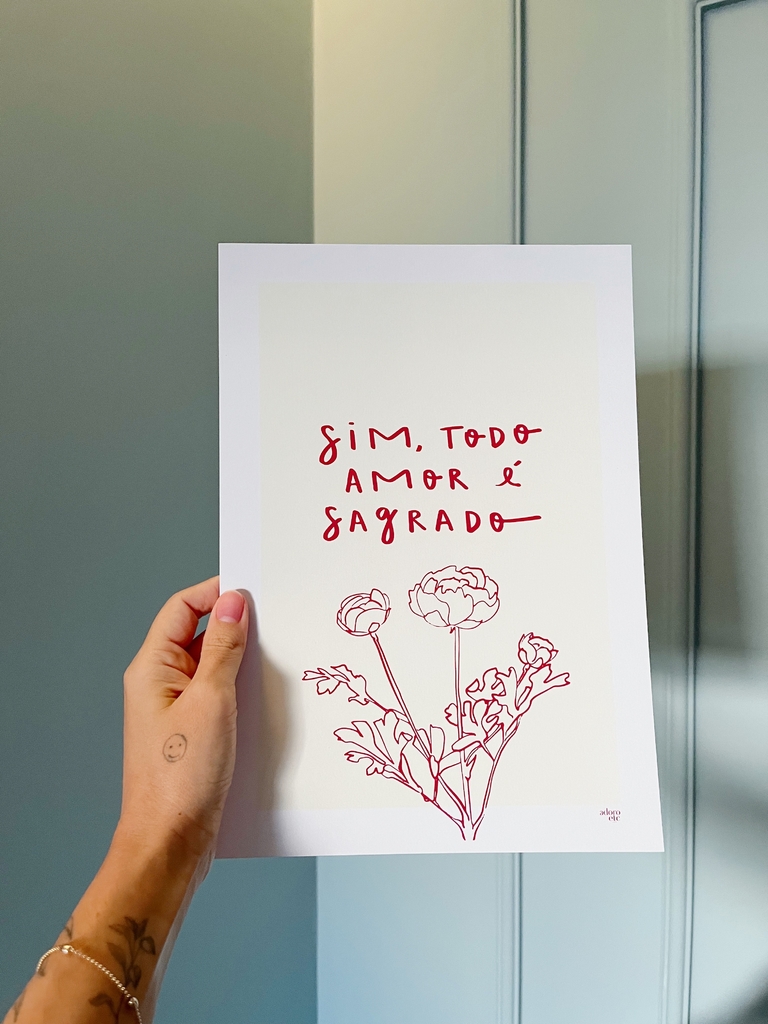 SIM, TODO
AMOR É
SAGRADO
adoro
etc